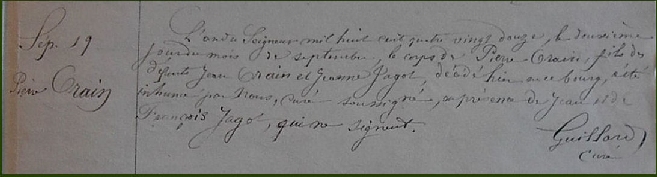 Sép. 19
Pierre Orain
L'an du Seigneur mil huit cent quatre vingt douze, le deuxième
jour du mois de septembre, le corps de Pierre Orain, fils des
défunts Jean Orain et Jeanne Jagot, décédé hier au bourg, a été
inhumé par nous, curé soussigné, en présence de Jean et de
François Jagot, qui ne signent.
Guillard
Curé